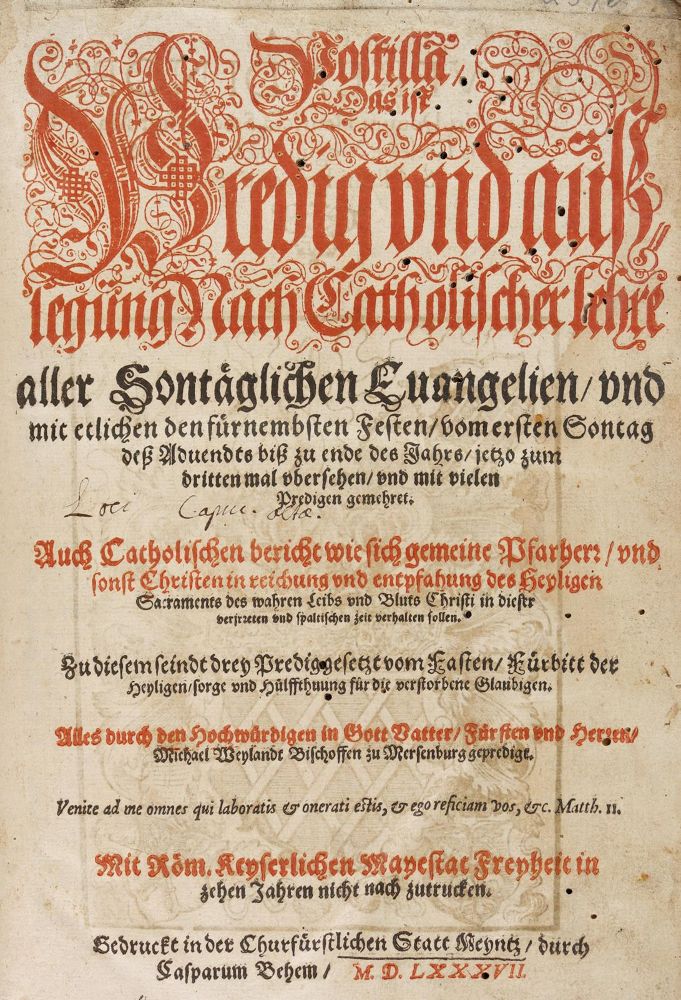 Postilla,
Das ist
Predig vnd auß-
legung Nach Catholischer lehre
aller Sontäglichen Euangelien/ vnd
mit etlichen den fürnembsten Festen/ vom ersten Sontag
deß Aduendts biß zu ende des Jahrs/ jetzo zum
dritten mal vbersehen/ vnd mit vielen
Predigen gemehret.
Loci Capuc.
Auch Catholischen bericht wie sich gemeine Pfarherr/ vnd
sonst Christen in reichung vnd entpfahung des Heyligen
Sacraments des wahren Leibs vnd Bluts Christi in dieser
verjrreten vnd spaltischen zeit verhalten sollen.
Zu diesem seindt drey Predig gesetzt vom Fasten/ Fürbitt der
Heyligen/ sorge vnd Hülffthuung für die verstorbene Glaubigen.
Alles durch den Hochwürdigen in Gott Vatter/ Fürsten vnd Herren/
Michael Weylandt Bischoffen zu Mersenburg geprediget.
Venite ad me omnes qui laboratis & onerati estis, & ego reficiam vos, &c. Matth. 11.
Mit Röm. Keyserlichen Mayestat Freyheit in
zehen Jahren nicht nach zutrucken.
Gedruckt in der Churfürstlichen Statt Meyntz/ durch
Casparum Behem/ M. D. LXXXVII.